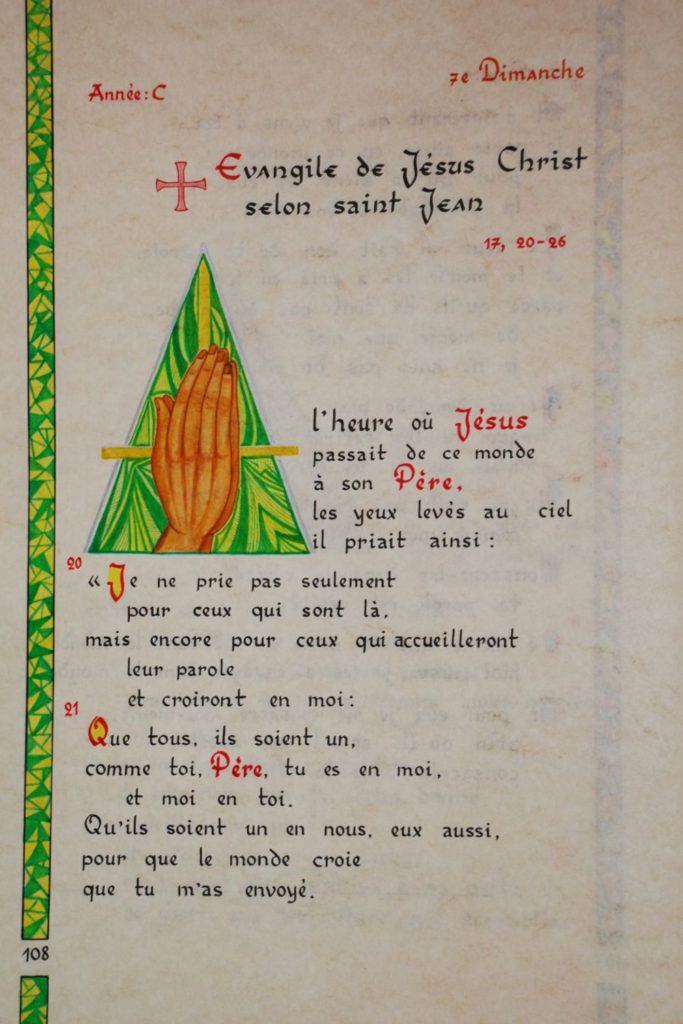 Année: C
7e Dimanche
Evangile de Jésus Christ
selon saint Jean
17, 20-26
l'heure où Jésus
passait de ce monde
à son Père,
les yeux levés au ciel
il priait ainsi :
20
« Je ne prie pas seulement
pour ceux qui sont là,
mais encore pour ceux qui accueilleront
leur parole
et croiront en moi :
21
Que tous, ils soient un,
comme toi, Père, tu es en moi,
et moi en toi.
Qu'ils soient un en nous, eux aussi,
pour que le monde croie
que tu m'as envoyé.
108